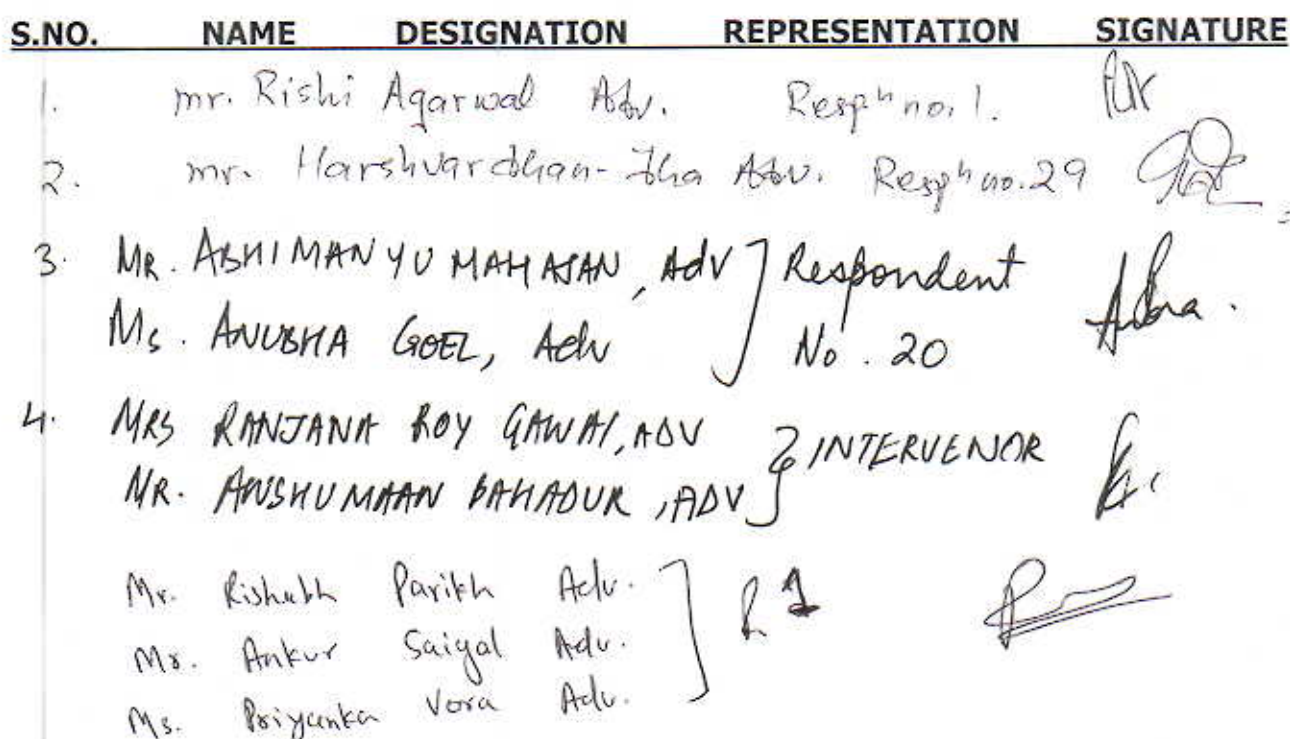 S.NO. NAME DESIGNATION REPRESENTATION SIGNATURE
1. mr. Rishi Agarwal Adv. Resp no. 1.
2. mr. Harshvardhan Jha Adv. Resp no. 29
3. MR. ABHIMANYU MAHAJAN, Adv Respondent
Ms. ANUBHA GOEL, Adv No. 20
4. MRS RANJANA ROY GAWAI, ADV INTERVENOR
MR. ANSHUMAAN BAHADUR, ADV
Mr. Rishabh Parikh Adv. R 1
Mr. Ankur Saigal Adv.
Ms. Priyanka Vora Adv.